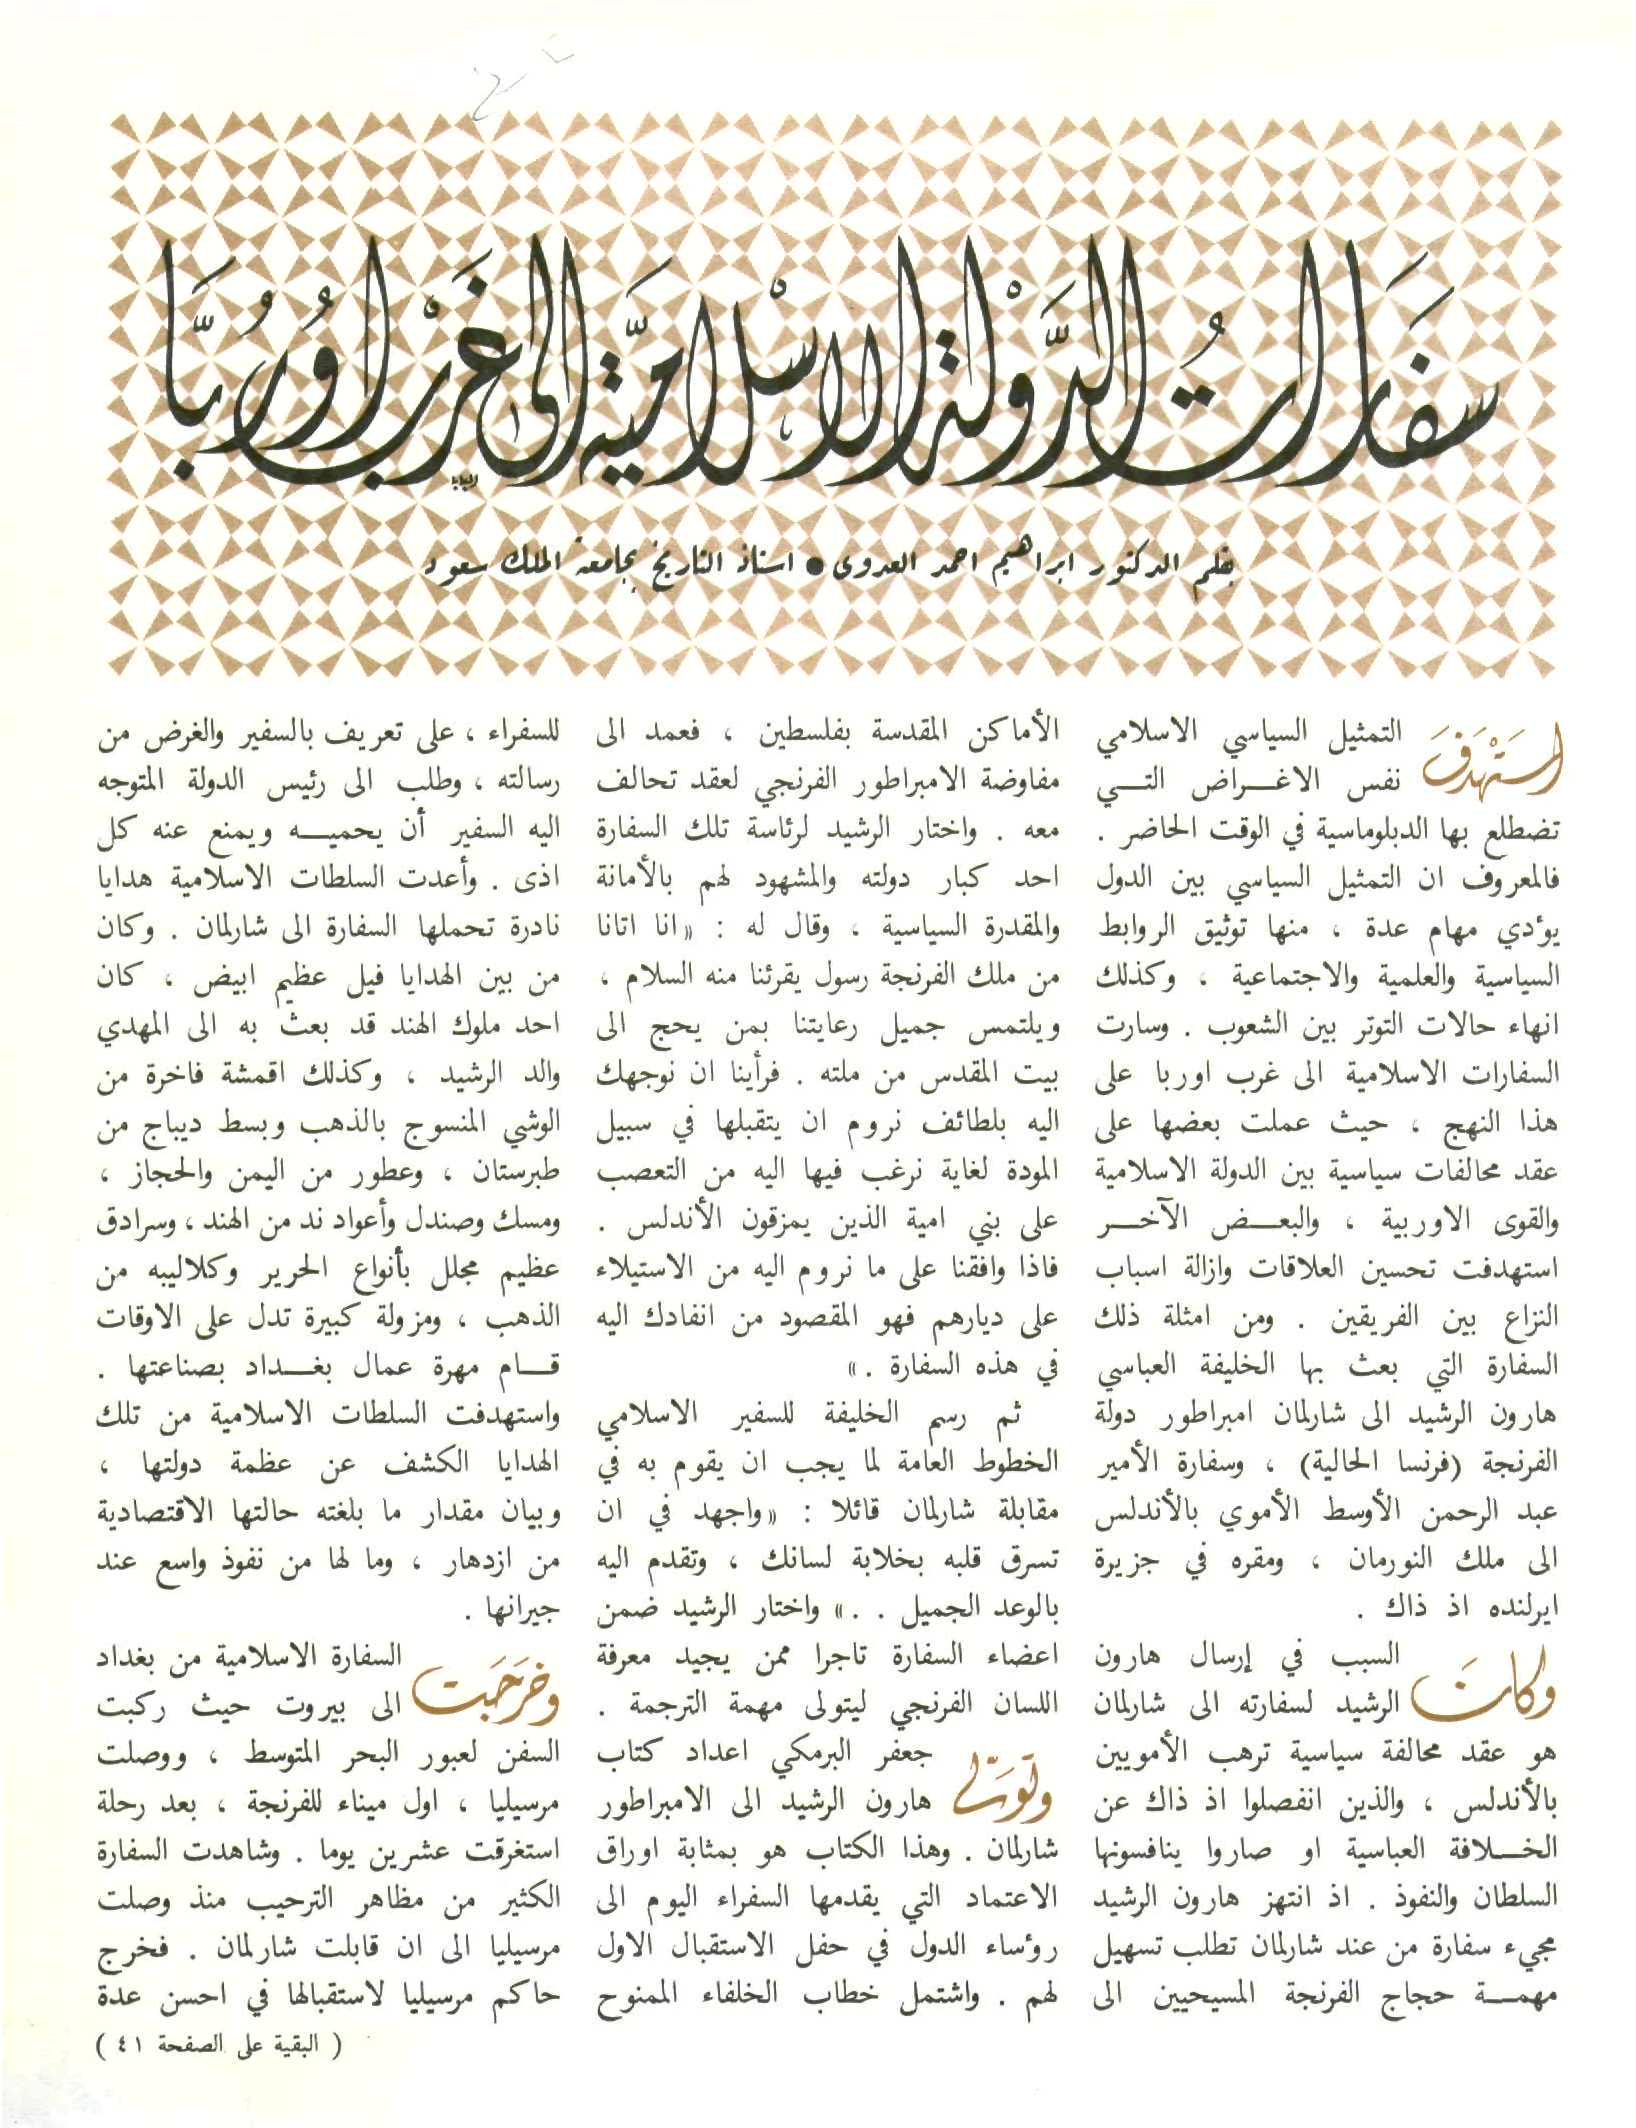 سفارات الدَّوْلة الاسْلاميَّة الى غَرْب اوُرُبَّا
بقلم الدكتور ابراهيم احمد العدوى ● استاذ التاريخ بجامعة الملك سعود
استَهْدَفَ التمثيل السياسي الاسلامي
نفس الاغـراض التـي
تضطلع بها الدبلوماسية في الوقت الحاضر .
فالمعروف ان التمثيل السياسي بين الدول
يؤدي مهام عدة ، منها توثيق الروابط
السياسية والعلمية والاجتماعية ، وكذلك
انهاء حالات التوتر بين الشعوب . وسارت
السفارات الاسلامية الى غرب اوربا على
هذا النهج ، حيث عملت بعضها على
عقد محالفات سياسية بين الدولة الاسلامية
والقوى الاوربية ، والبعـض الآخـر
استهدفت تحسين العلاقات وازالة اسباب
النزاع بين الفريقين . ومن امثلة ذلك
السفارة التي بعث بها الخليفة العباسي
هارون الرشيد الى شارلمان امبراطور دولة
الفرنجة (فرنسا الحالية) ، وسفارة الأمير
عبد الرحمن الأوسط الأموي بالأندلس
الى ملك النورمان ، ومقره في جزيرة
ايرلنده اذ ذاك .
وكانَ السبب في إرسال هارون
الرشيد لسفارته الى شارلمان
هو عقد محالفة سياسية ترهب الأمويين
بالأندلس ، والذين انفصلوا اذ ذاك عن
الخـلافة العباسية او صاروا ينافسونها
السلطان والنفوذ . اذ انتهز هارون الرشيد
مجيء سفارة من عند شارلمان تطلب تسهيل
مهمـة حجاج الفرنجة المسيحيين الى
الأماكن المقدسة بفلسطين ، فعمد الى
مفاوضة الامبراطور الفرنجي لعقد تحالف
معه . واختار الرشيد لرئاسة تلك السفارة
احد كبار دولته والمشهود لهم بالأمانة
والمقدرة السياسية ، وقال له : «انا اتانا
من ملك الفرنجة رسول يقرئنا منه السلام ،
ويلتمس جميل رعايتنا بمن يحج الى
بيت المقدس من ملته . فرأينا ان نوجهك
اليه بلطائف نروم ان يتقبلها في سبيل
المودة لغاية نرغب فيها اليه من التعصب
على بني امية الذين يمزقون الأندلس .
فاذا وافقنا على ما نروم اليه من الاستيلاء
على ديارهم فهو المقصود من انفادك اليه
في هذه السفارة .»
ثم رسم الخليفة للسفير الاسلامي
الخطوط العامة لما يجب ان يقوم به في
مقابلة شارلمان قائلا : «واجهد في ان
تسرق قلبه بخلابة لسانك ، وتقدم اليه
بالوعد الجميل . .» واختار الرشيد ضمن
اعضاء السفارة تاجرا ممن يجيد معرفة
اللسان الفرنجي ليتولى مهمة الترجمة .
وتوَلّى جعفر البرمكي اعداد كتاب
هارون الرشيد الى الامبراطور
شارلمان . وهذا الكتاب هو بمثابة اوراق
الاعتماد التي يقدمها السفراء اليوم الى
روءساء الدول في حفل الاستقبال الاول
لهم . واشتمل خطاب الخلفاء الممنوح
للسفراء ، على تعريف بالسفير والغرض من
رسالته ، وطلب الى رئيس الدولة المتوجه
اليه السفير أن يحميـه ويمنع عنه كل
اذى . وأعدت السلطات الاسلامية هدايا
نادرة تحملها السفارة الى شارلمان . وكان
من بين الهدايا فيل عظيم ابيض ، كان
احد ملوك الهند قد بعث به الى المهدي
والد الرشيد ، وكذلك اقمشة فاخرة من
الوشي المنسوج بالذهب وبسط ديباج من
طبرستان ، وعطور من اليمن والحجاز ،
ومسك وصندل وأعواد ند من الهند ، وسرادق
عظيم مجلل بأنواع الحرير وكلاليبه من
الذهب ، ومزولة كبيرة تدل على الاوقات
قـام مهرة عمال بغـداد بصناعتها .
واستهدفت السلطات الاسلامية من تلك
الهدايا الكشف عن عظمة دولتها ،
وبيان مقدار ما بلغته حالتها الاقتصادية
من ازدهار ، وما لها من نفوذ واسع عند
جيرانها .
وخَرَجَت السفارة الاسلامية من بغداد
الى بيروت حيث ركبت
السفن لعبور البحر المتوسط ، ووصلت
مرسيليا ، اول ميناء للفرنجة ، بعد رحلة
استغرقت عشرين يوما . وشاهدت السفارة
الكثير من مظاهر الترحيب منذ وصلت
مرسيليا الى ان قابلت شارلمان . فخرج
حاكم مرسيليا لاستقبالها في احسن عدة
( البقية على الصفحة ٤١ )